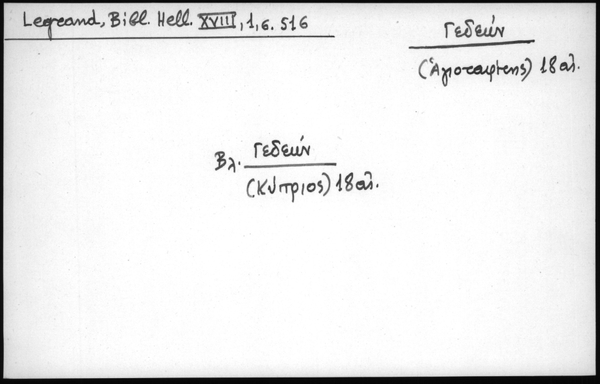 Legrand, Bibl. Hell. XVIII, 1, σ. 516
Γεδεών
(Ἁγιοταφίτης) 18 αἰ.
Βλ. Γεδεών
(Κύπριος) 18 αἰ.